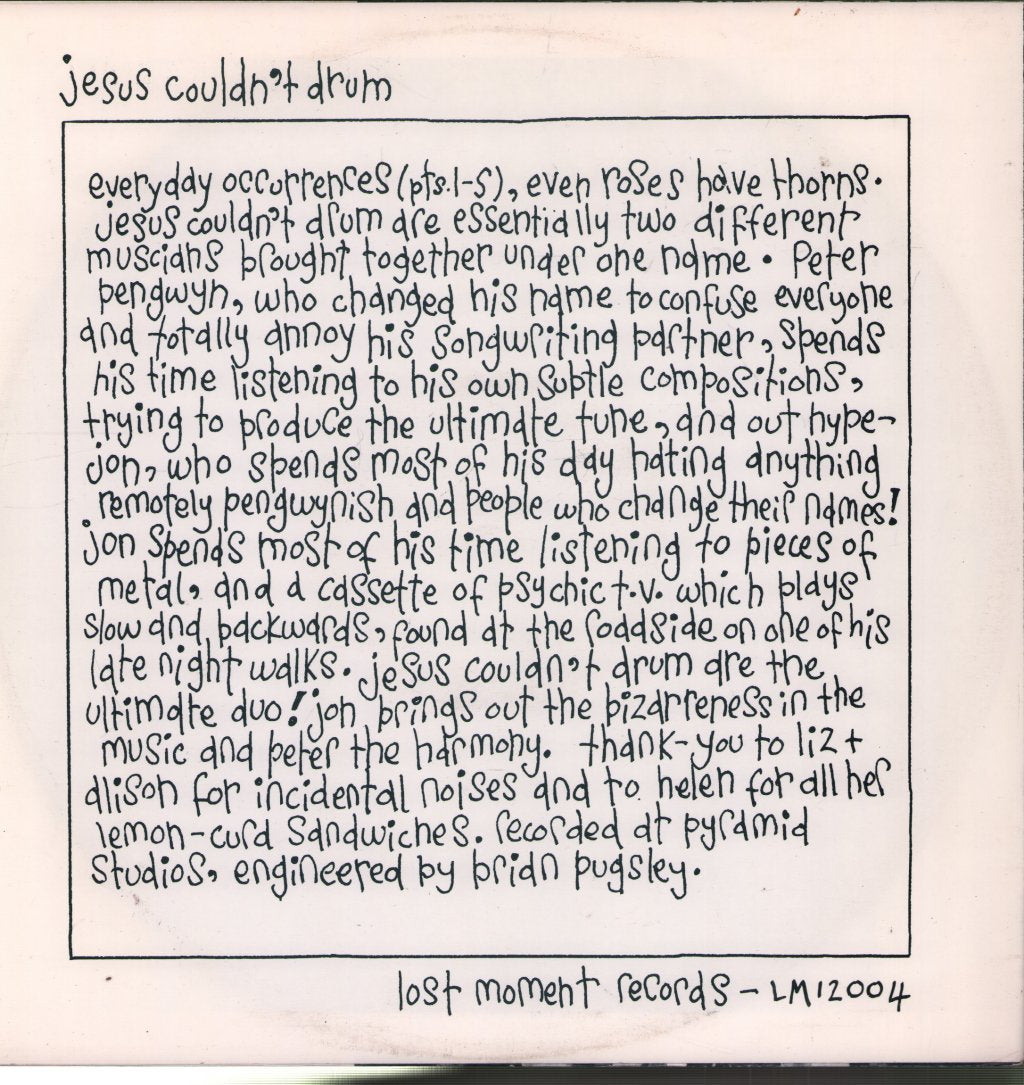 jesus couldn't drum
everyday occurrences (pts.1-5), even roses have thorns.
jesus couldn't drum are essentially two different
muscians brought together under one name. Peter
pengwyn, who changed his name to confuse everyone
and totally annoy his songwriting partner, spends
his time listening to his own subtle compositions,
trying to produce the ultimate tune, and out hype-
jon, who spends most of his day hating anything
remotely pengwynish and people who change their names!
jon spends most of his time listening to pieces of
metal, and a cassette of psychic t.v. which plays
slow and backwards, found at the roadside on one of his
late night walks. jesus couldn't drum are the
ultimate duo! jon brings out the bizarreness in the
music and peter the harmony. thank-you to liz +
alison for incidental noises and to helen for all her
lemon-curd sandwiches. recorded at pyramid
studios, engineered by brian pugsley.
lost moment records - LM12004